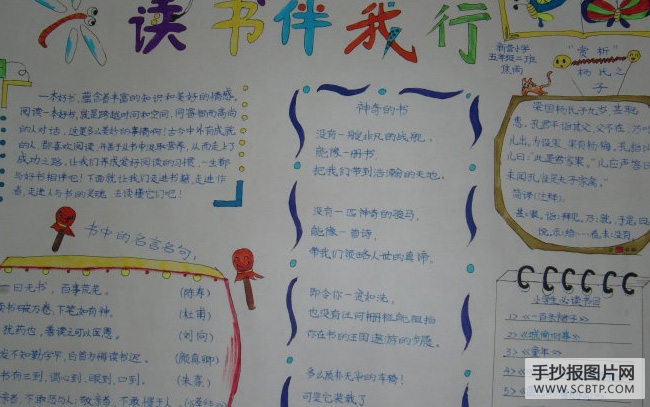 读书伴我行
一本好书,蕴含着丰富的知识和美好的情感。
阅读一本好书,就是跨越时间和空间,同睿智而高尚
的人对话,这是多么美妙的事情啊!古今中外有成就
的人,都喜欢阅读,并善于从书中汲取营养,从而走上了
成功之路,让我们养成爱好阅读的习惯,一生都
与好书相伴吧!下面就让我们走进书籍,走进作
者,走进人与书的灵魂,去读懂它们吧!
书中的名言名句:
日无书,百事荒芜。 (陈寿)
读书破万卷,下笔如有神。 (杜甫)
犹药也,善读之可以医愚。 (刘向)
发不知勤学早,白首方悔读书迟。 (颜真卿)
书有三到,谓心到,眼到,口到。 (朱熹)
神奇的书
没有一艘非凡的战舰,
能像一册书,
把我们带到浩瀚的天地。
没有一匹神奇的骏马,
能像一首诗,
带我们领略人世的真谛。
即令你一贫如洗,
也没有任何栅栏能阻挡
你在书的王国遨游的步履。
多么质朴无华的车骑!
可是它装载了
新营小学
五年级二班
焦雨
“赏析”
杨氏之
子
梁国杨氏子九岁,甚聪
惠。孔君平诣其父,父不在,乃
儿出,为设果,果有杨梅,孔指
儿曰:“此是君家果。”儿应声答曰
未闻孔雀是夫子家禽。
简译(注释):
甚:很,诣:拜见,乃:就,于是,
小学生必读书目
1>《一百条裙子》
2>《城南旧事》
3>《童年》
手抄报图片网
WWW.SCBTP.COM